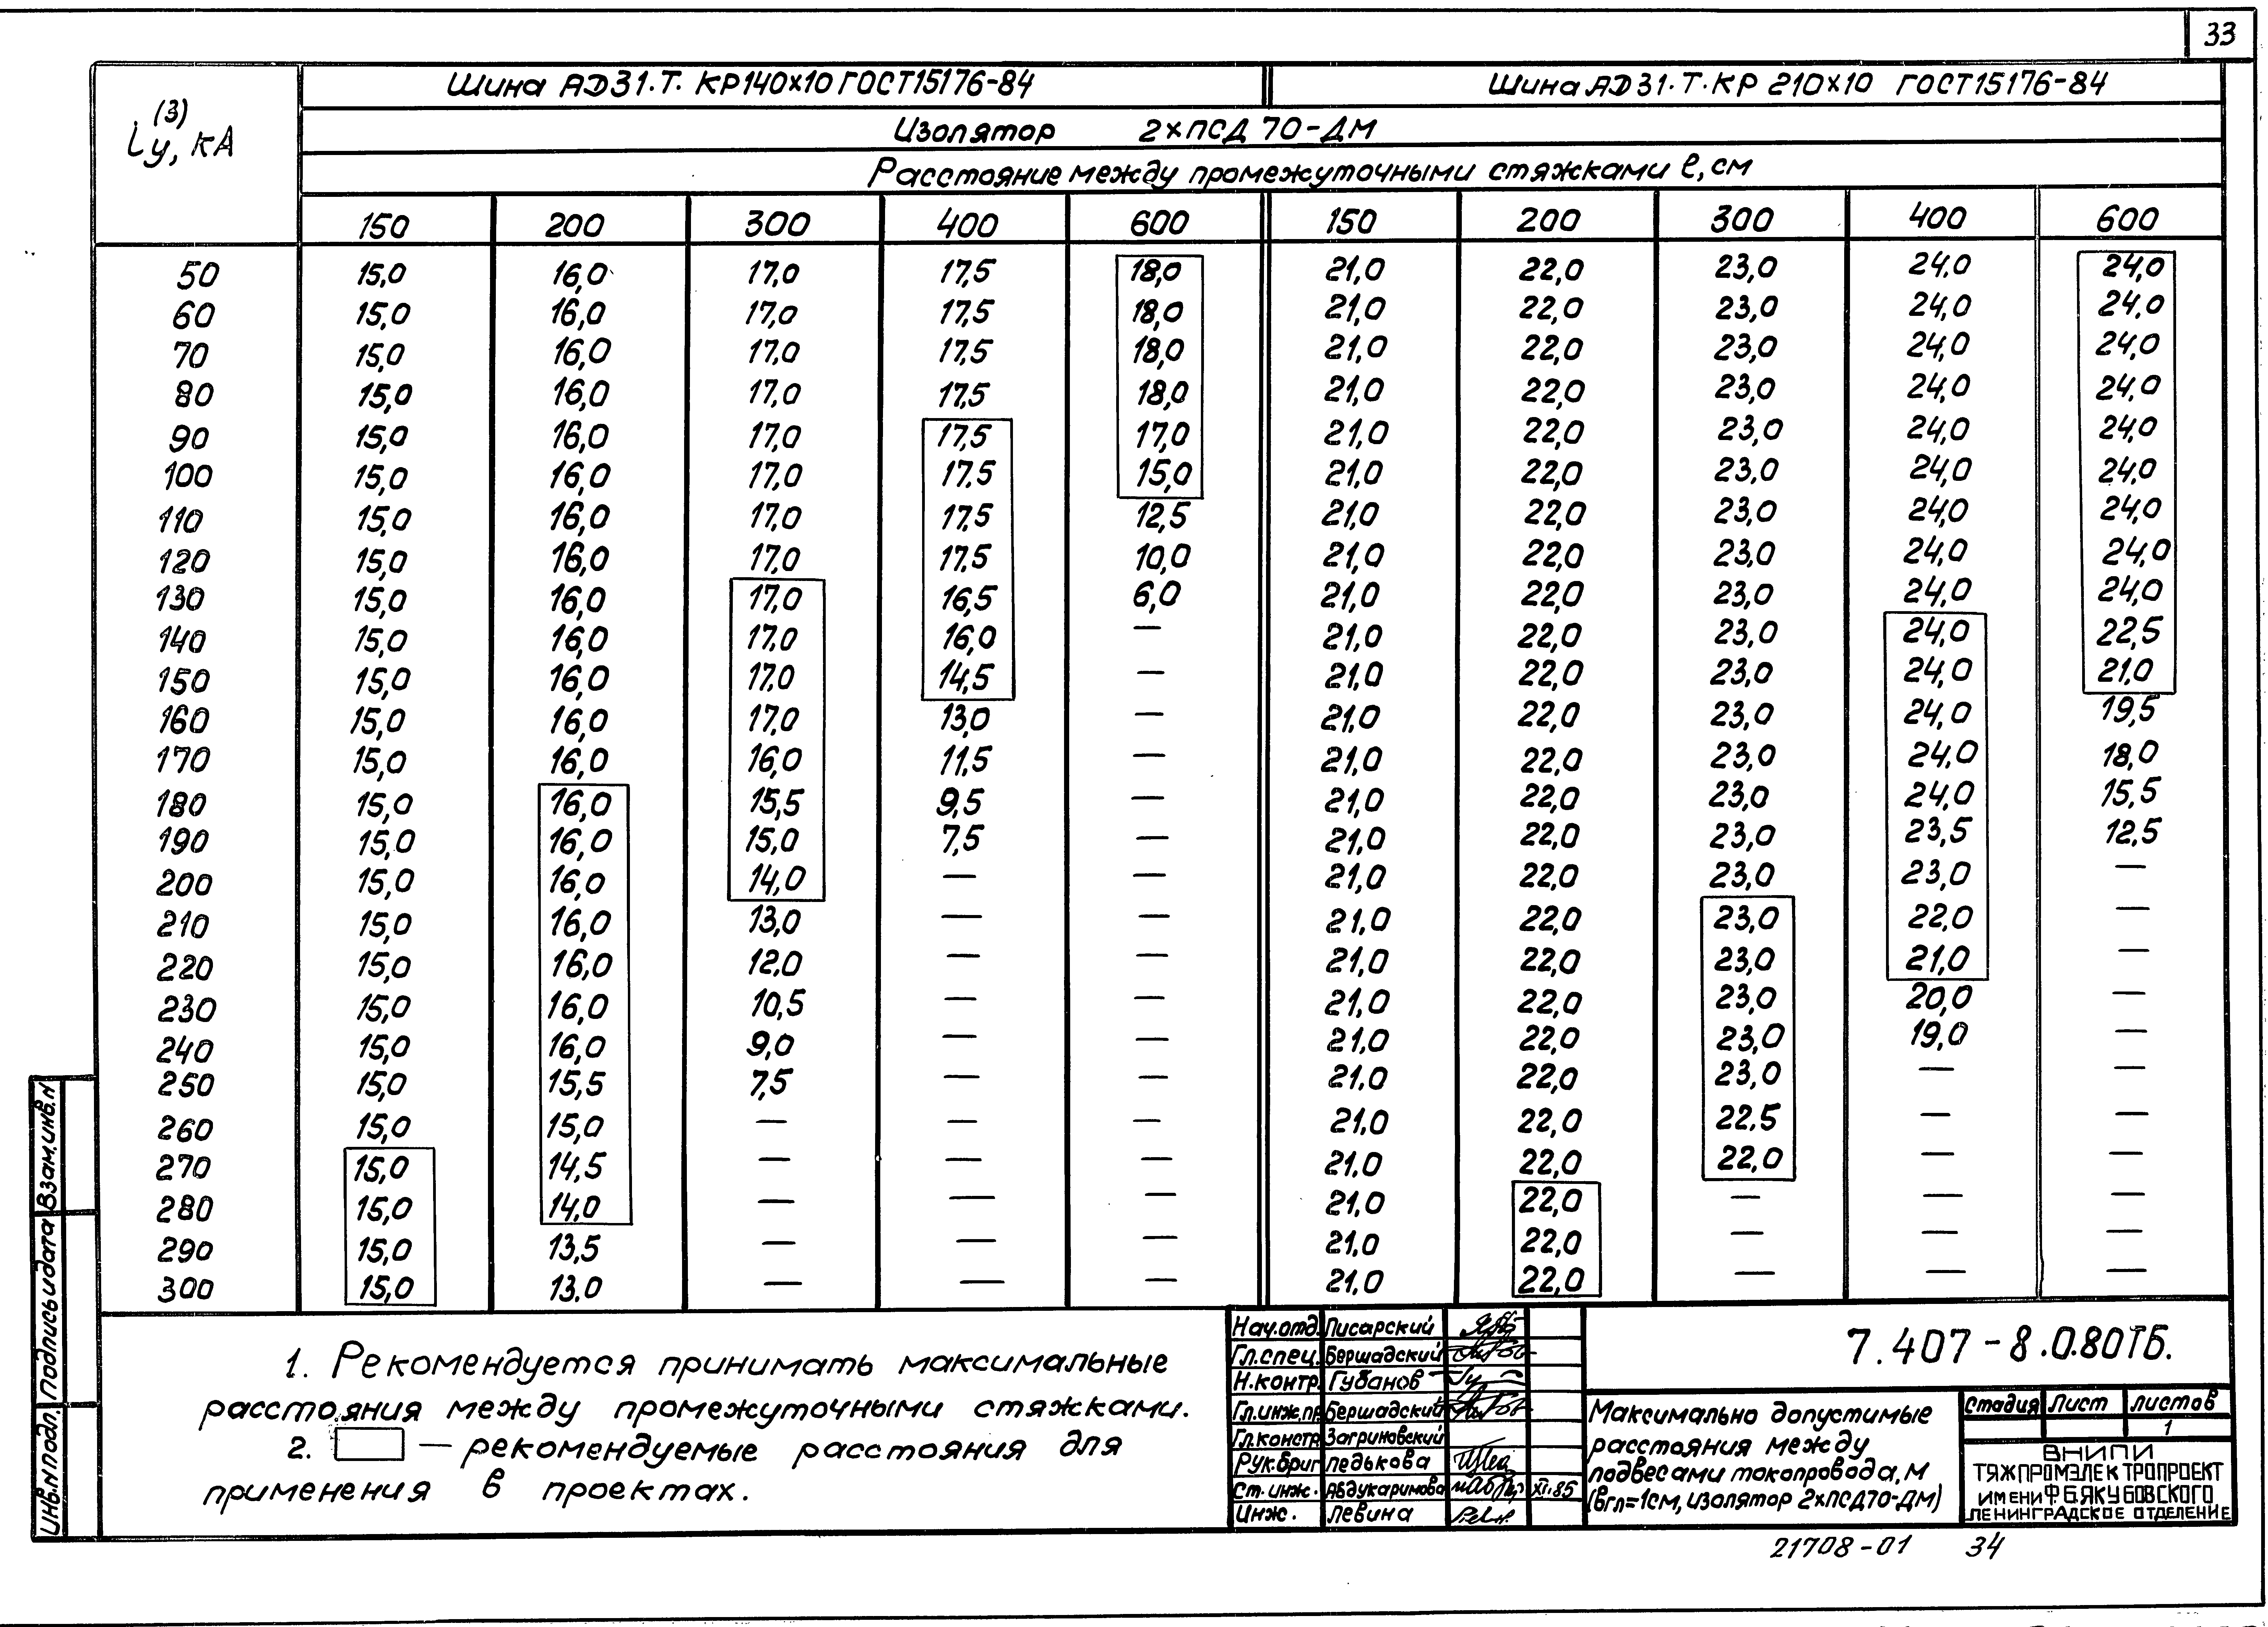 33
Шина АД31.Т. КР140х10 ГОСТ15176-84 Шина АД31.Т.КР 210х10 ГОСТ15176-84
(3)
iу, кА
Изолятор 2хПСД 70-ДМ
Расстояние между промежуточными стяжками ℓ, см
150 200 300 400 600 150 200 300 400 600
50 15,0 16,0 17,0 17,5 18,0 21,0 22,0 23,0 24,0 24,0
60 15,0 16,0 17,0 17,5 18,0 21,0 22,0 23,0 24,0 24,0
70 15,0 16,0 17,0 17,5 18,0 21,0 22,0 23,0 24,0 24,0
80 15,0 16,0 17,0 17,5 18,0 21,0 22,0 23,0 24,0 24,0
90 15,0 16,0 17,0 17,5 17,0 21,0 22,0 23,0 24,0 24,0
100 15,0 16,0 17,0 17,5 15,0 21,0 22,0 23,0 24,0 24,0
110 15,0 16,0 17,0 17,5 12,5 21,0 22,0 23,0 24,0 24,0
120 15,0 16,0 17,0 17,5 10,0 21,0 22,0 23,0 24,0 24,0
130 15,0 16,0 17,0 16,5 6,0 21,0 22,0 23,0 24,0 24,0
140 15,0 16,0 17,0 16,0 — 21,0 22,0 23,0 24,0 22,5
150 15,0 16,0 17,0 14,5 — 21,0 22,0 23,0 24,0 21,0
160 15,0 16,0 17,0 13,0 — 21,0 22,0 23,0 24,0 19,5
170 15,0 16,0 16,0 11,5 — 21,0 22,0 23,0 24,0 18,0
180 15,0 16,0 15,5 9,5 — 21,0 22,0 23,0 24,0 15,5
190 15,0 16,0 15,0 7,5 — 21,0 22,0 23,0 23,5 12,5
200 15,0 16,0 14,0 — — 21,0 22,0 23,0 23,0 —
210 15,0 16,0 13,0 — — 21,0 22,0 23,0 22,0 —
220 15,0 16,0 12,0 — — 21,0 22,0 23,0 21,0 —
230 15,0 16,0 10,5 — — 21,0 22,0 23,0 20,0 —
240 15,0 16,0 9,0 — — 21,0 22,0 23,0 19,0 —
250 15,0 15,5 7,5 — — 21,0 22,0 23,0 — —
260 15,0 15,0 — — — 21,0 22,0 22,5 — —
270 15,0 14,5 — — — 21,0 22,0 22,0 — —
280 15,0 14,0 — — — 21,0 22,0 — — —
290 15,0 13,5 — — — 21,0 22,0 — — —
300 15,0 13.0 — — — 21,0 22,0 — — —
1. Рекомендуется принимать максимальные
расстояния между промежуточными стяжками.
2. — рекомендуемые расстояния для
применения в проектах.
Взам.инв.н
Подпись и дата
Инв.н подл.
Нач.отд. Писарский
Гл.спец. Бершадский
Н.контр. Губанов
Гл.инж.пр. Бершадский
Гл.констр. Загриновский
Рук.бриг Ледькова
Ст.инж. Абдукаримова XI.85
Инж. Левина
7.407-8.0.80ТБ.
Максимально допустимые
расстояния между
подвесами токопровода, м
(вгл=1см, изолятор 2хПСД70-ДМ)
Стадия Лист Листов
1
ВНИПИ
ТЯЖПРОМЭЛЕКТРОПРОЕКТ
ИМЕНИ Ф.Б.ЯКУБОВСКОГО
ЛЕНИНГРАДСКОЕ ОТДЕЛЕНИЕ
21708-01 34